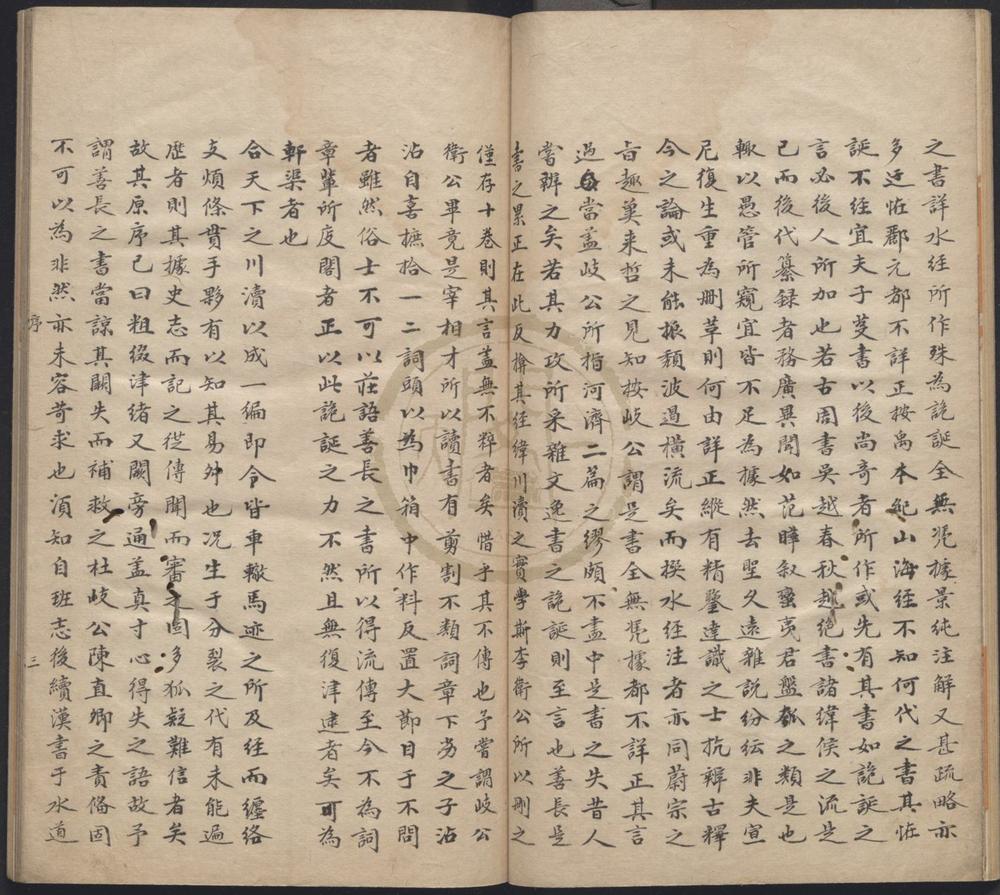 之書詳水經所作殊為詭誕全無憑據景純注解又甚疏略亦
多迂怪酈元都不詳正按禹本紀山海經不知何代之書其恠
誕不經宜夫子芟書以後尚奇者所作或先有其書如詭誕之
言必後人所加也若古周書吳越春秋越絕書諸緯侯之流是
已而後代纂録者務廣異聞如范曄叙蠻夷君盤瓠之類是也
輙以愚管所窺宜皆不足為據然去聖久遠雜說紛紜非夫宣
尼復生重為刪草則何由詳正縱有精鑒達識之士抗辯古釋
今之論或未能振頽波遏橫流矣而撰水經注者亦同蔚宗之
旨趣冀来哲之見知按岐公謂是書全無憑據都不詳正其言
過當盖岐公所指河濟二篇之繆頗不盡中是書之失昔人
嘗辨之矣若其力攻所采雜文逸書之詭誕則至言也善長是
書之累正在此反揜其經緯川瀆之實學斯李衛公所以刪之
僅存十卷則其言盖無不粹者矣惜乎其不傳也予嘗謂岐公
衛公畢竟是宰相才所以讀書有剪割不類詞章下劣之子沾
沾自喜摭拾一二詞頭以為巾箱中作料反置大節目于不問
者雖然俗士不可以莊語善長之書所以得流傳至今不為詞
章輩所庋閣者正以此詭誕之力不然且無復津逮者矣可為
軒渠者也
合天下之川瀆以成一編即令皆車轍馬迹之所及経而纏絡
支煩條貫手夥有以知其易舛也况生于分裂之代有未能遍
歴者則其據史志而記之從傳聞而審之固多狐疑難信者矣
故其原序已曰粗綴津緒又闕旁通盖真寸心得失之語故予
謂善長之書當諒其闕失而補救之杜岐公陳直卿之責偹固
不可以為非然亦未容苛求也須知自班志後續漢書于水道
序
三